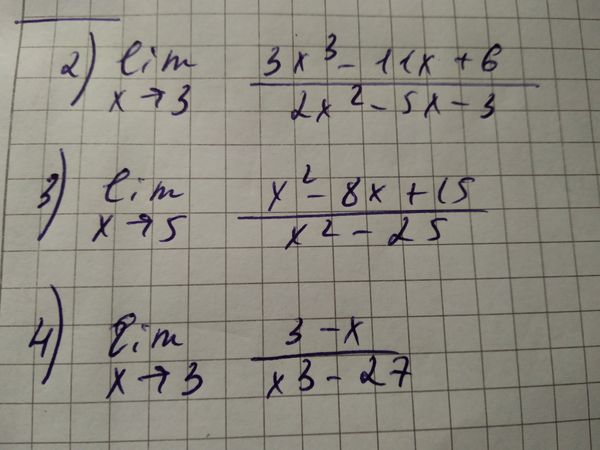 2) lim x→3 (3x³ - 11x + 6)/(2x² - 5x - 3)
3) lim x→5 (x² - 8x + 15)/(x² - 25)
4) lim x→3 (3 - x)/(x3 - 27)